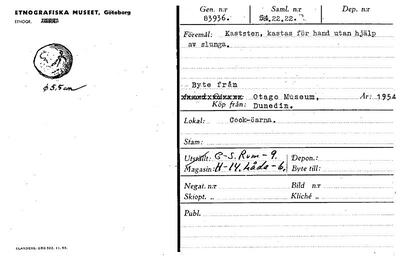 ETNOGRAFISKA MUSEET, Göteborg
ETNOGR.
ø 5,5 cm
ELANDERS. GBG 502. 11. 55.
Gen. n:r Saml. n:r Dep. n:r
83936. 54.22.22.
Föremål: Kaststen, kastas för hand utan hjälp
av slunga.
Byte från
Otago Museum, År: 1954
Köp från: Dunedin.
Lokal: Cook-öarna.
Stam:
Utställt: C-S. Rum-9. Depon.:
Magasin: H-14. Låda-6. Byte till:
Negat. n:r Bild n:r
Skiopt. „ Kliché „
Publ.